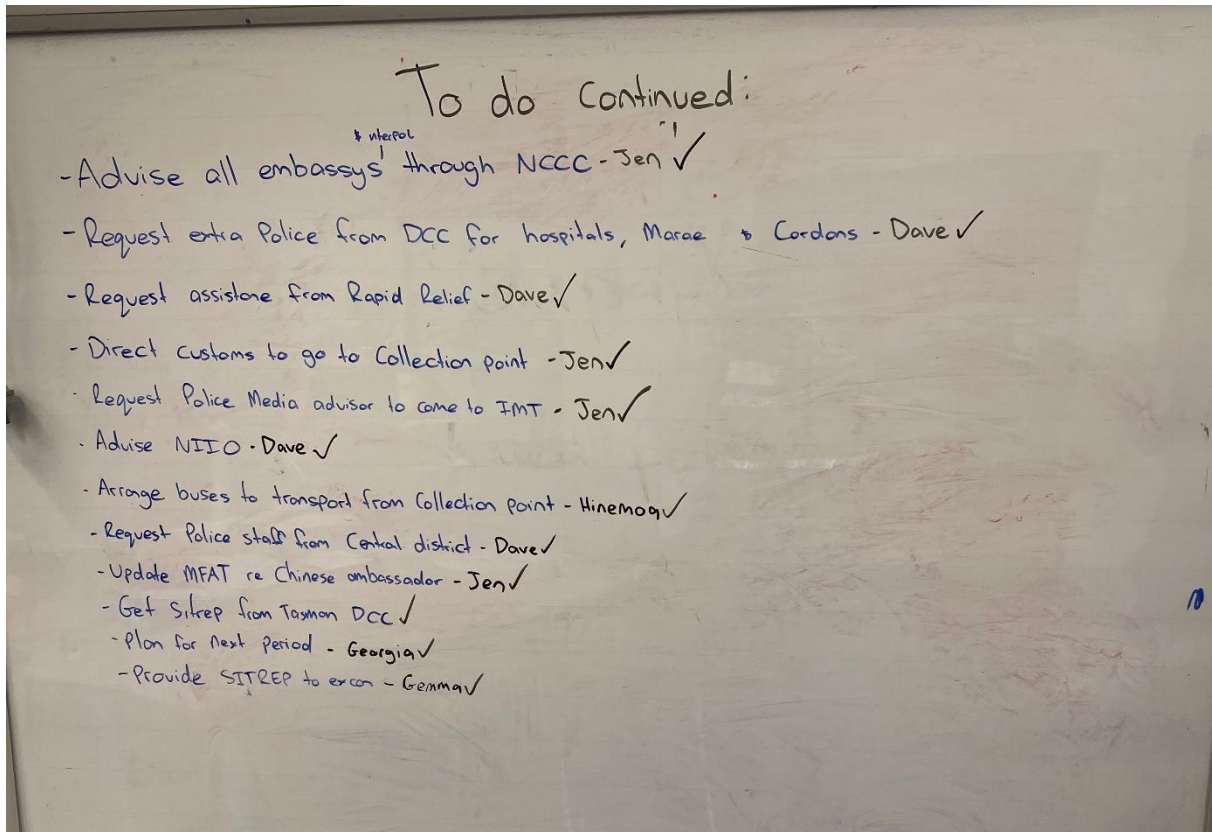 To do Continued:
& nterpol
- Advise all embassys through NCCC - Jen ✓
- Request extra Police from DCC for hospitals, Marae & Cordons - Dave ✓
- Request assistone from Rapid Relief - Dave ✓
- Direct customs to go to Collection point - Jen ✓
· Request Police Media advisor to come to IMT - Jen ✓
· Advise NIIO - Dave ✓
· Arrange buses to transport from Collection point - Hinemoa ✓
- Request Police staff from Central district - Dave ✓
- Update MFAT re Chinese ambassador - Jen ✓
- Get Sitrep from Tasman DCC ✓
- Plan for next period - Georgia ✓
- Provide SITREP to excon - Gemma ✓